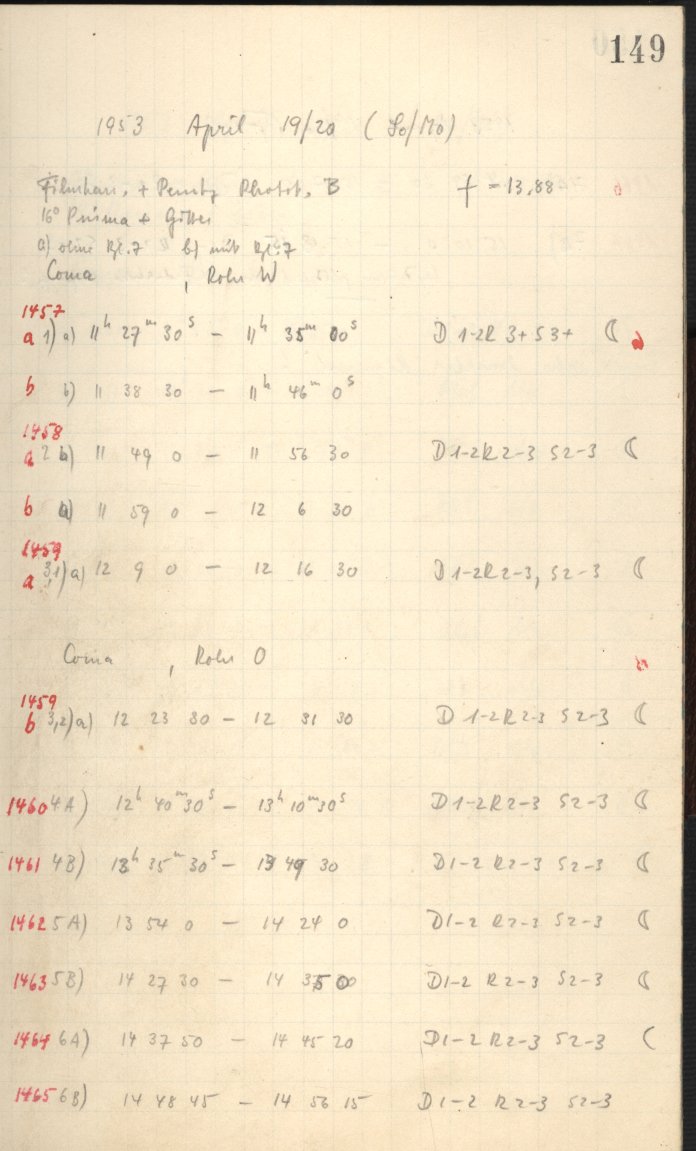 149
1953 April 19/20 (So/Mo)
+ Photot. B f = 13,88
16° Prisma + Gitter
a) ohne b) mit
Coma , Rohr W
1457
a 1) a) 11h 27m 30s – 11h 35m 00s D 1-2 R 3+ S 3+ ☾
b b) 11 38 30 – 11h 46m 0s
1458
a 2 b) 11 49 0 – 11 56 30 D 1-2 R 2-3 S 2-3 ☾
b a) 11 59 0 – 12 6 30
1459
a 3,1) a) 12 9 0 – 12 16 30 D 1-2 R 2-3, S 2-3 ☾
Coma , Rohr O
1459
b 3,2) a) 12 23 30 – 12 31 30 D 1-2 R 2-3 S 2-3 ☾
1460 4A) 12h 40m 30s – 13h 10m 30s D 1-2 R 2-3 S 2-3 ☾
1461 4B) 13h 35m 30s – 13 49 30 D 1-2 R 2-3 S 2-3 ☾
1462 5A) 13 54 0 – 14 24 0 D 1-2 R 2-3 S 2-3 ☾
1463 5B) 14 27 30 – 14 35 0 D 1-2 R 2-3 S 2-3 ☾
1464 6A) 14 37 50 – 14 45 20 D 1-2 R 2-3 S 2-3 (
1465 6B) 14 48 45 – 14 56 15 D 1-2 R 2-3 S 2-3